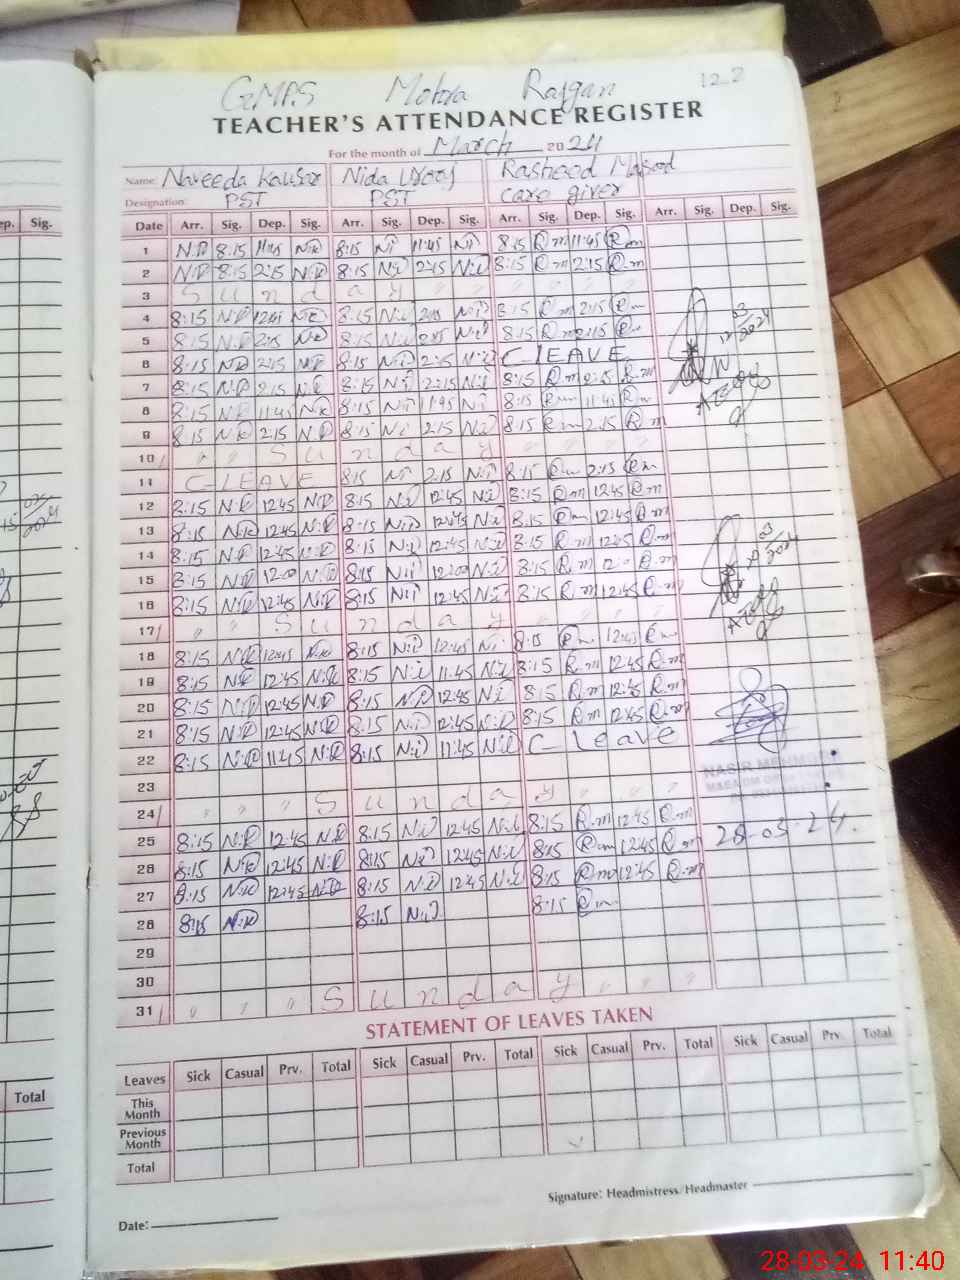 GMPS Mohra Rajgan 12-2
TEACHER'S ATTENDANCE REGISTER
For the month of March 2024
Name: Naveeda Kausar Nida Urooj Rasheed Masood
Designation: PST PST care giver
ep. Sig. Date Arr. Sig. Dep. Sig. Arr. Sig. Dep. Sig. Arr. Sig. Dep. Sig. Arr. Sig. Dep. Sig.
1 N.R 8:15 11:45 N.R 8:15 N.i 11:45 N.i 8:15 R.m 11:45 R.m
2 N.R 8:15 2:15 N.R 8:15 N.i 2:15 N.i 8:15 R.m 2:15 R.m
3 S u n d a y " " " "
4 8:15 N.R 12:45 N.R 8:15 N.i 2:15 N.i 8:15 R.m 2:15 R.m
5 8:15 N.R 2:15 N.R 8:15 N.i 2:15 N.i 8:15 R.m 2:15 R.m
6 8:15 N.R 2:15 N.R 8:15 N.i 2:15 N.i C-lEAVE
7 8:15 N.R 2:15 N.R 8:15 N.i 2:15 N.i 8:15 R.m 2:15 R.m
8 8:15 N.R 11:45 N.R 8:15 N.i 11:45 N.i 8:15 R.m 11:45 R.m
9 8:15 N.R 2:15 N.R 8:15 N.i 2:15 N.i 8:15 R.m 2:15 R.m
10 " " S u n d a y " " " "
11 C-LEAVE 8:15 N.i 2:15 N.i 8:15 R.m 2:15 R.m
12 8:15 N.R 12:45 N.R 8:15 N.i 12:45 N.i 8:15 R.m 12:45 R.m
13 8:15 N.R 12:45 N.R 8:15 N.i 12:45 N.i 8:15 R.m 12:45 R.m
14 8:15 N.R 12:45 N.R 8:15 N.i 12:45 N.i 8:15 R.m 12:45 R.m
15 8:15 N.R 12:00 N.R 8:15 N.i 12:00 N.i 8:15 R.m R.m
16 8:15 N.R 12:45 N.R 8:15 N.i 12:45 N.i 8:15 R.m 12:45 R.m
17 " " S u n d a y " " " "
18 8:15 N.R 12:45 N.R 8:15 N.i 12:45 N.i 8:15 R.m 12:45 R.m
19 8:15 N.R 12:45 N.R 8:15 N.i 11:45 N.i 8:15 R.m 12:45 R.m
20 8:15 N.R 12:45 N.R 8:15 12:45 N.i 8:15 R.m 12:45 R.m
21 8:15 N.R 12:45 N.R 8:15 N.i 12:45 8:15 R.m 12:45 R.m
22 8:15 N.R 11:45 N.R 8:15 N.i 11:45 N.i C-Leave
23
24 " " " S u n d a y " " "
25 8:15 N.R 12:45 N.R 8:15 N.i 12:45 N.i 8:15 R.m 12:45 R.m
28-03-24.
26 8:15 N.R 12:45 N.R 8:15 N.i 12:45 N.i 8:15 R.m 12:45 R.m
27 8:15 N.R 12:45 N.R 8:15 N.i 12:45 N.i 8:15 R.m 12:45 R.m
28 8:15 N.R 8:15 N.i 8:15 R.m
29
30
31 " " " S u n d a y " " "
STATEMENT OF LEAVES TAKEN
Leaves Sick Casual Prv. Total Sick Casual Prv. Total Sick Casual Prv. Total Sick Casual Prv. Total
Total
This Month
Previous Month
Total
Signature: Headmistress/Headmaster
Date:
28-03-24 11:40